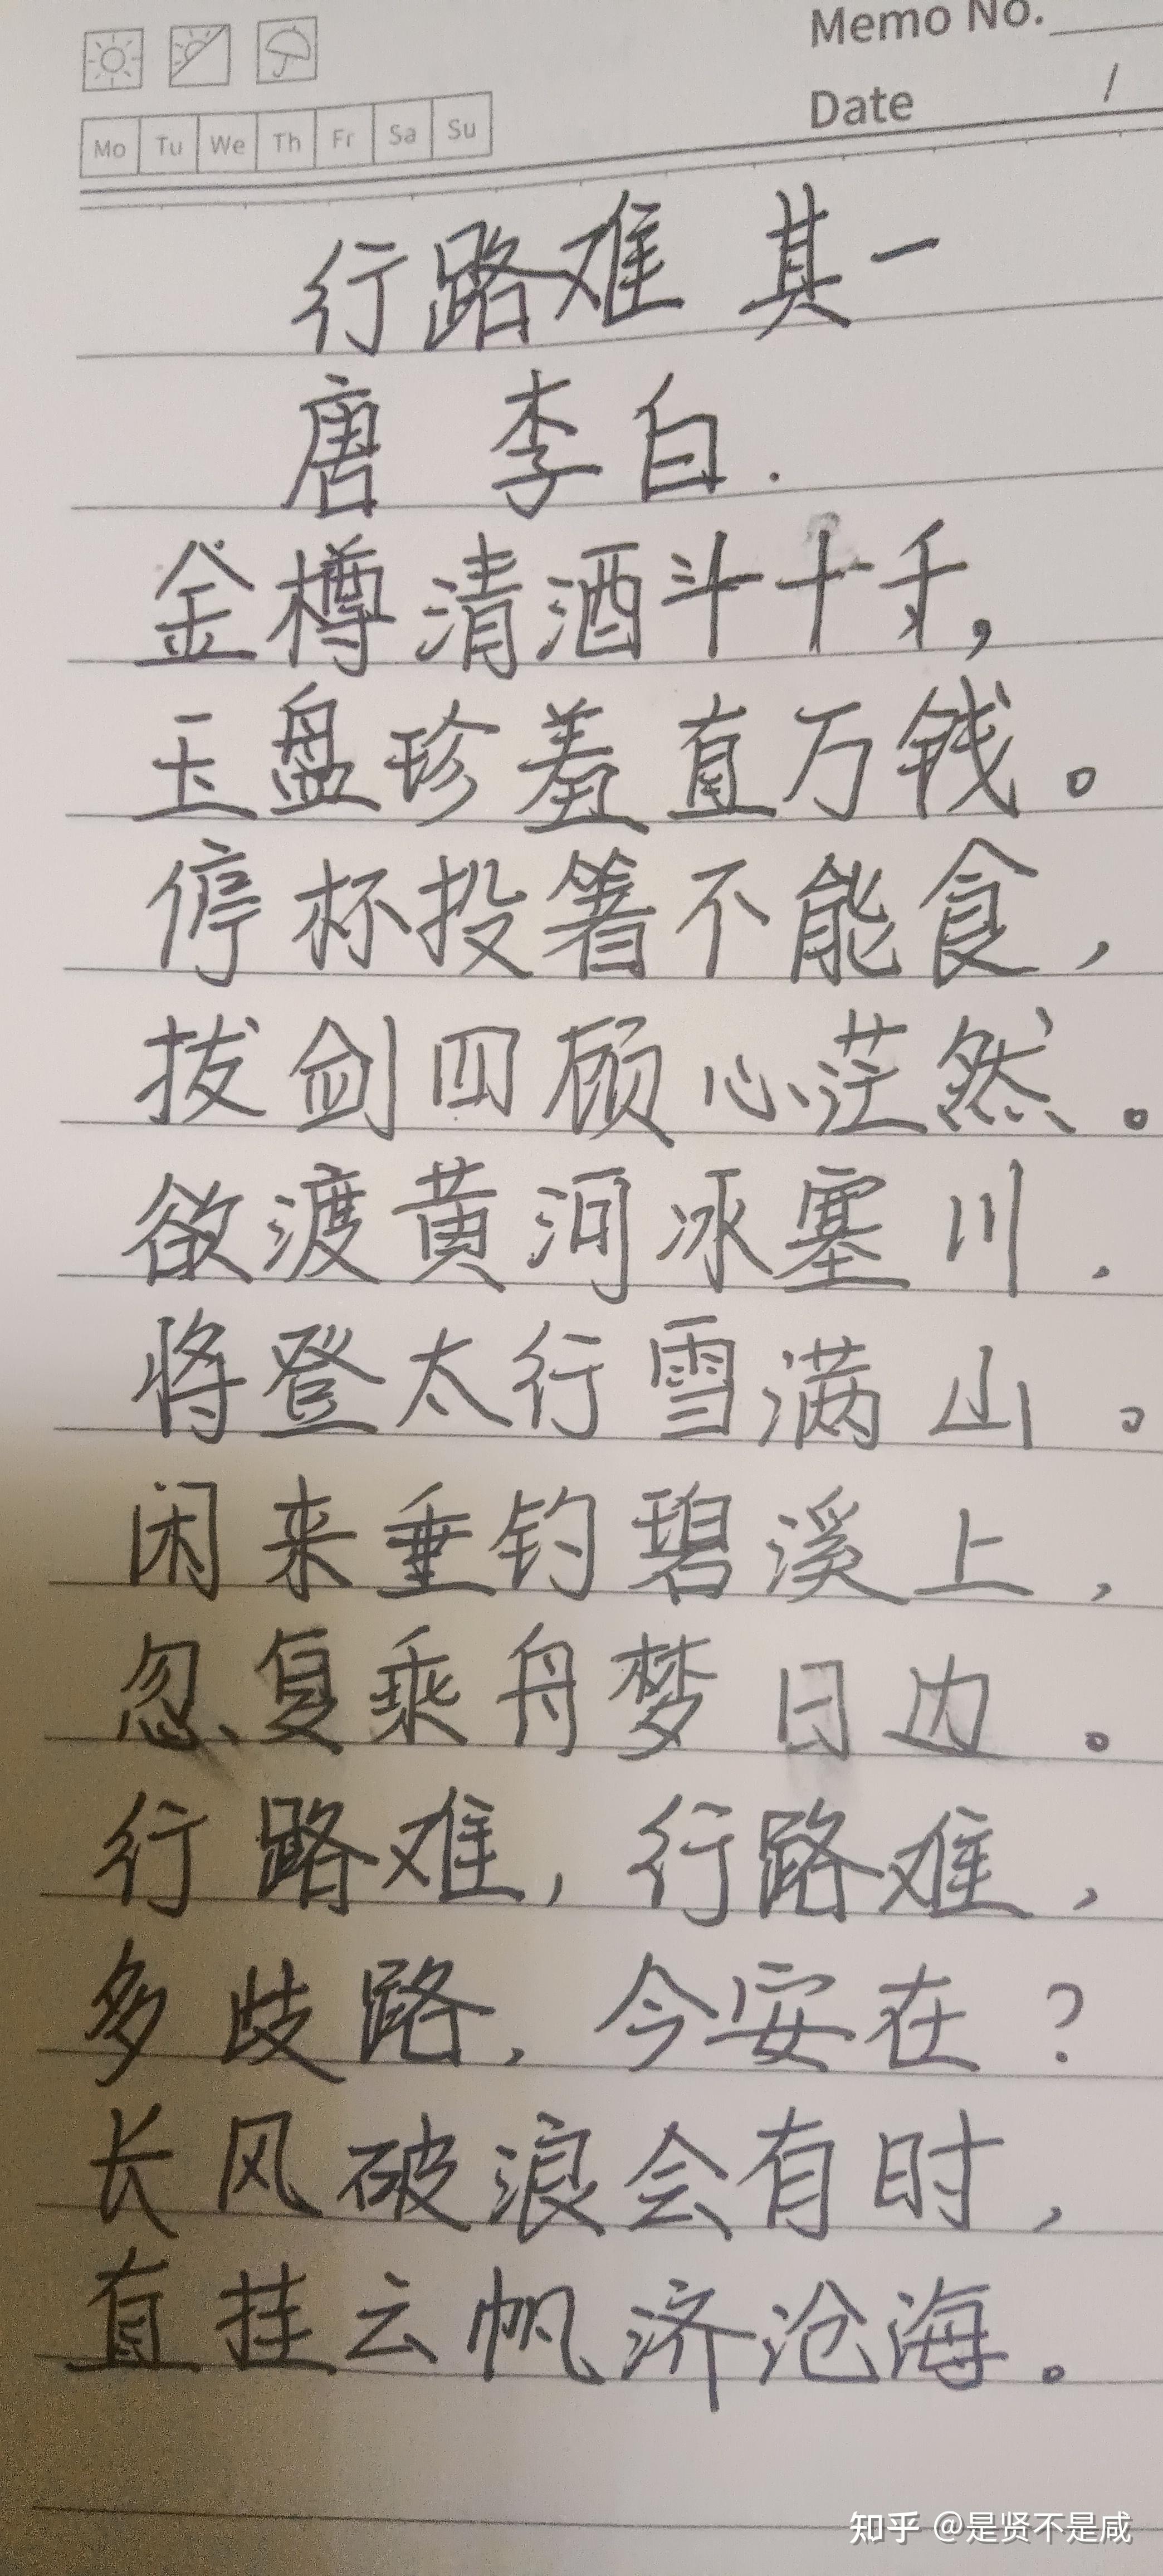 Memo No.
Date /
Mo Tu We Th Fr Sa Su
行路难 其一
唐 李白.
金樽清酒斗十千,
玉盘珍羞直万钱。
停杯投箸不能食,
拔剑四顾心茫然。
欲渡黄河冰塞川,
将登太行雪满山。
闲来垂钓碧溪上,
忽复乘舟梦日边。
行路难,行路难,
多歧路,今安在?
长风破浪会有时,
直挂云帆济沧海。
知乎 @是贤不是咸